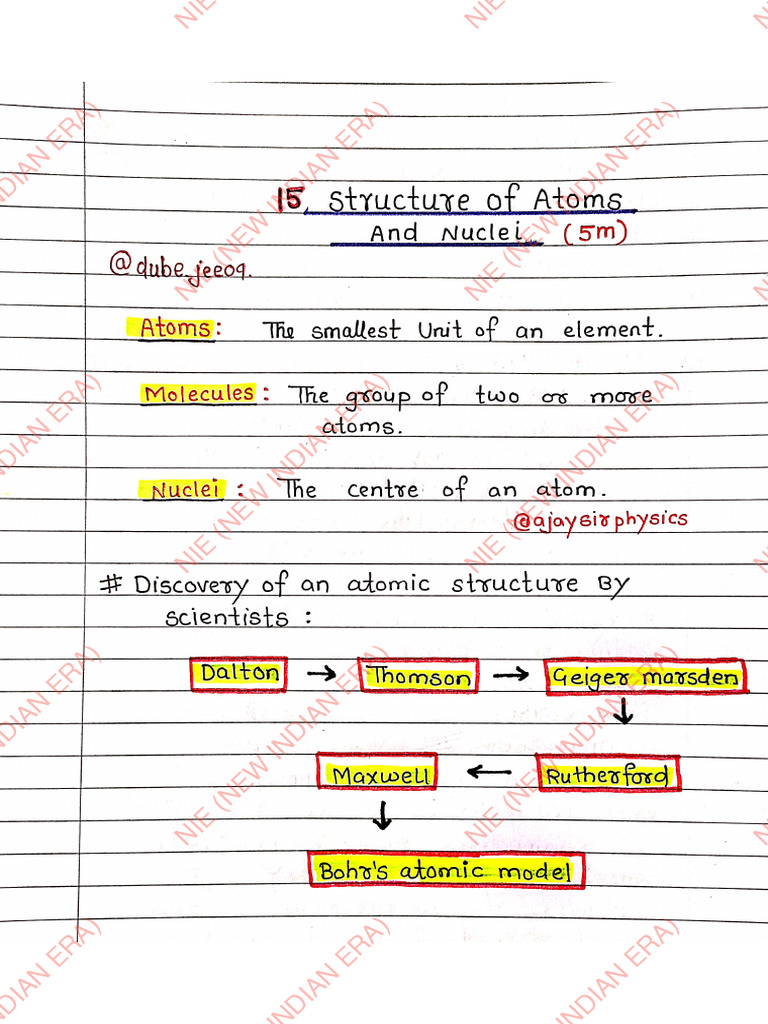 15. Structure of Atoms
And Nuclei (5m)
@dube_jee09.
Atoms: The smallest Unit of an element.
Molecules: The group of two or more
atoms.
Nuclei: The centre of an atom.
@ajaysirphysics
# Discovery of an atomic structure By
scientists:
Dalton → Thomson → Geiger marsden
↓
Maxwell ← Rutherford
↓
Bohr's atomic model
NIE (NEW INDIAN ERA)